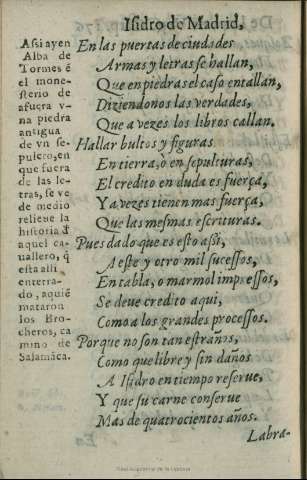 Isidro de Madrid,
Assi ay en
Alba de
Tormes ẽ
el mone-
sterio de
afuera v-
na piedra
antigua
de vn se-
pulcro, en
que fuera
de las le-
tras, se ve
de medio
relieue la
historia d̃
aquel ca-
uallero, q̃
està alli
enterra-
do, a quiẽ
mataron
los Bro-
cheros, ca
mino de
Salamãca.
En las puertas de ciudades
Armas y letras se hallan,
Que en piedras el caso entallan,
Diziendonos las verdades,
Que a vezes los libros callan.
Hallar bultos y figuras
En tierra, o en sepulturas,
El credito en duda es fuerça,
Y a vezes tienen mas fuerça,
Que las mesmas escrituras.
Pues dado que es esto assi,
A este y otro mil sucessos,
En tabla, o marmol impressos,
Se deue credito aqui,
Como a los grandes processos.
Porque no son tan estraños,
Como que libre y sin daños
A Isidro en tiempo reserue,
Y que su carne conserue
Mas de quatrocientos años.
Labra-